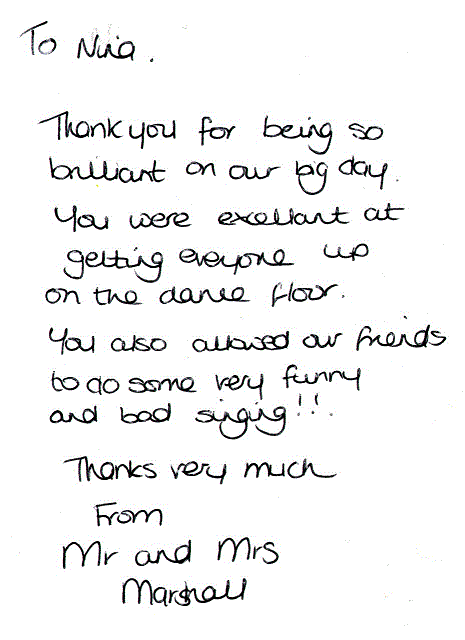 To Nina.
Thank you for being so
brilliant on our big day.
You were excellant at
getting everyone up
on the dance floor.
You also allowed our friends
to do some very funny
and bad singing!!!
Thanks very much
From
Mr and Mrs
Marshall